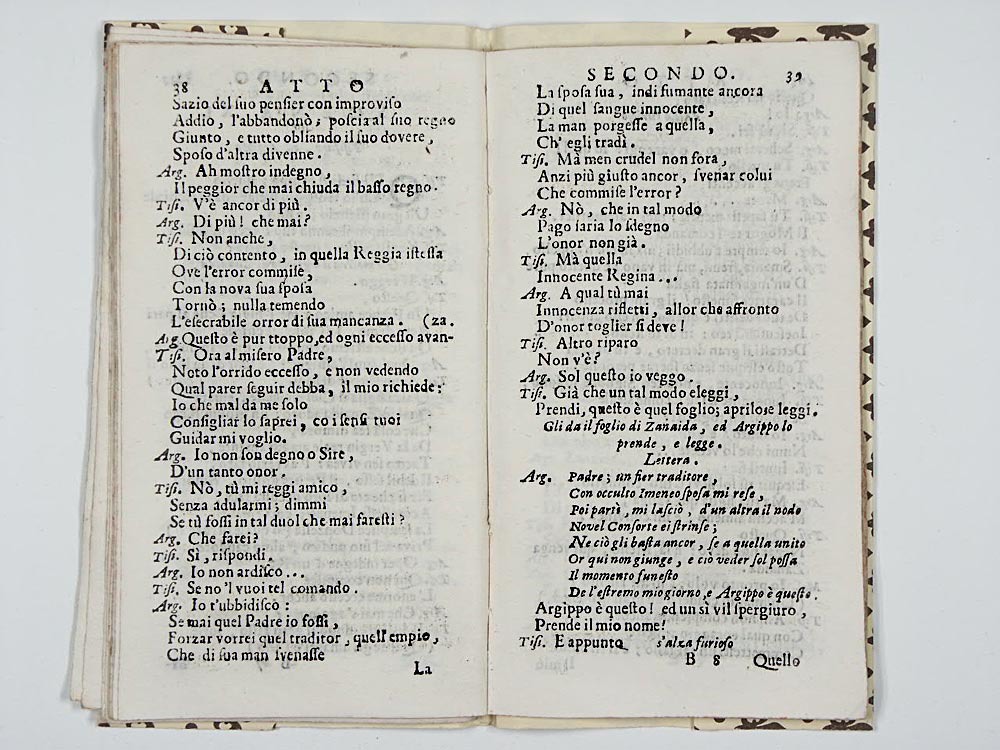 38 ATTO
Sazio del suo pensier con improviso
Addio, l'abbandonò; poscia al suo regno
Giunto, e tutto obliando il suo dovere,
Sposo d'altra divenne.
Arg. Ah mostro indegno,
Il peggior che mai chiuda il basso regno.
Tisi. V'è ancor di più.
Arg. Di più! che mai?
Tisi. Non anche,
Di ciò contento, in quella Reggia istessa
Ove l'error commise,
Con la nova sua sposa
Tornò; nulla temendo
L'esecrabile orror di sua mancanza. (za.
Arg. Questo è pur ttoppo, ed ogni eccesso avan-
Tisi. Ora al misero Padre,
Noto l'orrido eccesso, e non vedendo
Qual parer seguir debba, il mio richiede:
Io che mal da me solo
Consigliar lo saprei, co i sensi tuoi
Guidar mi voglio.
Arg. Io non son degno o Sire,
D'un tanto onor.
Tisi. Nò, tù mi reggi amico,
Senza adularmi; dimmi
Se tù fossi in tal duol che mai faresti?
Arg. Che farei?
Tisi. Sì, rispondi.
Arg. Io non ardisco...
Tisi. Se no'l vuoi tel comando.
Arg. Io t'ubbidisco:
Se mai quel Padre io fossi,
Forzar vorrei quel traditor, quell'empio,
Che di sua man svenasse
La
SECONDO. 39
La sposa sua, indi fumante ancora
Di quel sangue innocente,
La man porgesse a quella,
Ch'egli tradì.
Tisi. Mà men crudel non fora,
Anzi più giusto ancor, svenar colui
Che commise l'error?
Arg. Nò, che in tal modo
Pago saria lo sdegno
L'onor non già.
Tisi. Mà quella
Innocente Regina...
Arg. A qual tù mai
Innocenza rifletti, allor che affronto
D'onor toglier si deve!
Tisi. Altro riparo
Non v'è?
Arg. Sol questo io veggo.
Tisi. Già che un tal modo eleggi,
Prendi, questo è quel foglio; aprilo se leggi.
Gli da il foglio di Zanaida, ed Argippo lo
prende, e legge.
Lettera.
Arg. Padre; un fier traditore,
Con occulto Imeneo sposa mi rese,
Poi partì, mi lasciò, d'un altra il nodo
Novel Consorte ei strinse;
Ne ciò gli basta ancor, se a quella unito
Or qui non giunge, e ciò veder sol possa
Il momento funesto
De l'estremo mio giorno, e Argippo è questo.
Argippo è questo! ed un sì vil spergiuro,
Prende il mio nome!
Tisi. E appunto s'alza furioso
B 8 Quello